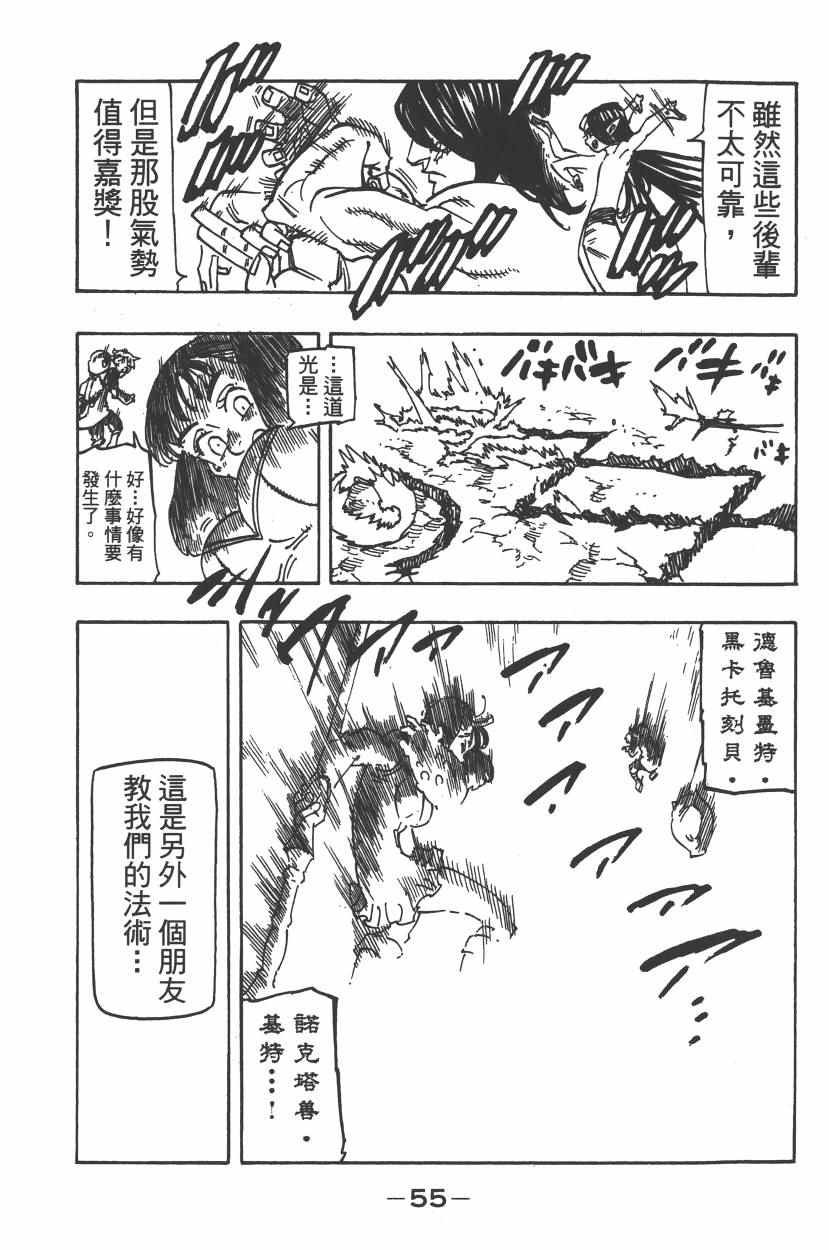 雖然這些後輩
不太可靠，
但是那股氣勢
值得嘉獎！
バキバキ
バキ
バキ
…這道
光是…
好…好像有
什麼事情要
發生了。
德魯基墨特．
黑卡托刻貝．
諾克塔善．
基特…！
這是另外一個朋友
教我們的法術…
—55—